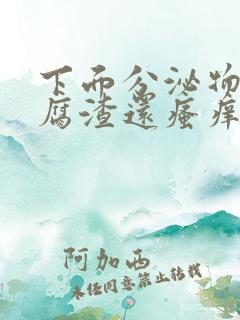 下面分泌物
腐渣还瘙痒
阿加西
未经同意禁止转载